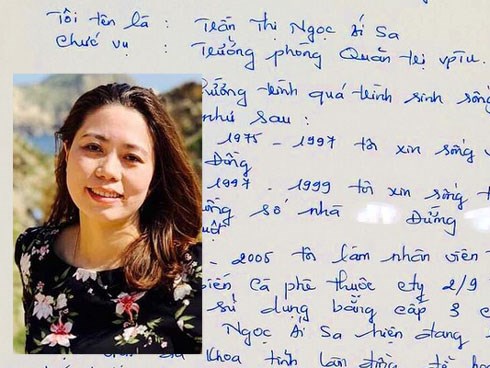 Tôi tên là : Trần Thị Ngọc Ái Sa
Chức vụ : Trưởng phòng Quản trị VPTU.
tường trình quá trình sinh sống
như sau :
1975 - 1997 tôi xin sống
Đồng
1997 - 1999 tôi xin sống
số nhà Đường
- 2005 tôi làm nhân viên
biến Cà phê thuộc cty 2/9
sử dụng bằng cấp 3
Ngọc Ái Sa hiện đang
Khoa tỉnh Lâm Đồng